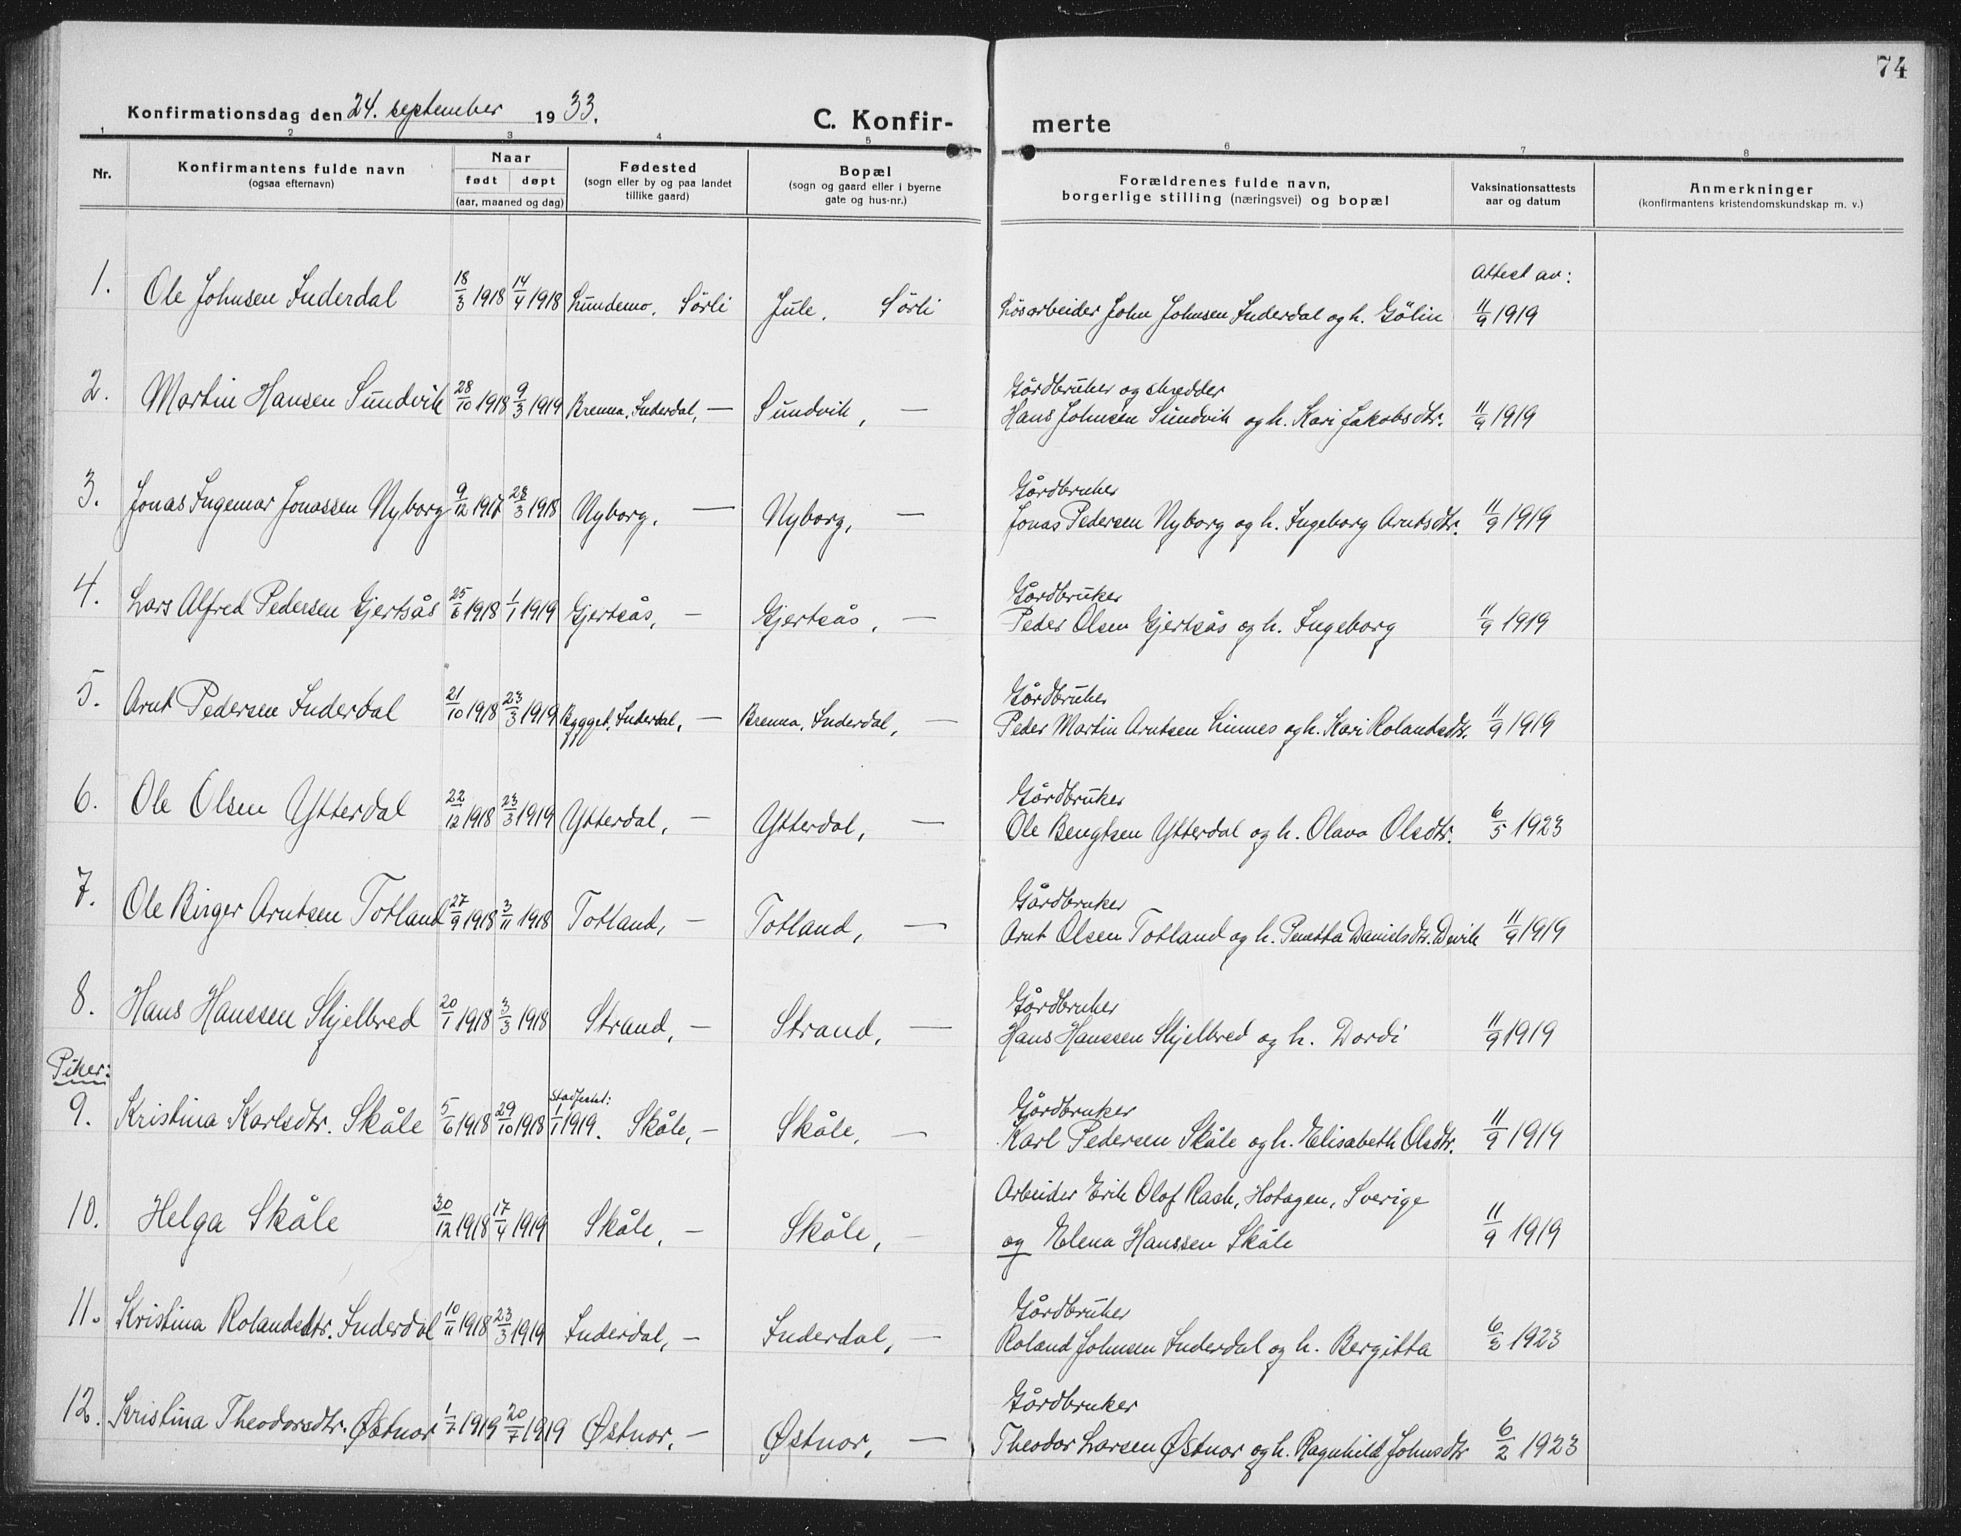 74
Konfirmationsdag den 24. september 1933.
C. Konfirmerte
1 2 3 4 5 6 7 8
Nr.
Konfirmantens fulde navn
(ogsaa efternavn)
Naar
født døpt
(aar, maaned og dag)
Fødested
(sogn eller by og paa landet
tillike gaard)
Bopæl
(sogn og gaard eller i byerne
gate og hus-nr.)
Forældrenes fulde navn,
borgerlige stilling (næringsvei) og bopæl
Vaksinationsattests
aar og datum
Anmerkninger
(konfirmantens kristendomskundskap m. v.)
Attest av:
1. Ole Johnsen Inderdal 18/3 1918 14/4 1918 Lundemo, Sørli Jule, Sørli Løsarbeider John Johnsen Inderdal og h. Gölin 11/9 1919
Gårdbruker og skredder
2. Martin Hansen Sundvik 28/10 1918 9/3 1919 Brenna, Inderdal, — Sundvik, — Hans Johnsen Sundvik og h. Kari Jakobsdtr. 11/9 1919
Gårdbruker
3. Jonas Ingemar Jonassen Nyborg 9/12 1917 28/3 1918 Nyborg, — Nyborg, — Jonas Pedersen Nyborg og h. Ingeborg Arntsdtr. 11/9 1919
Gårdbruker
4. Lars Alfred Pedersen Gjertsås 25/6 1918 1/1 1919 Gjertsås, — Gjertsås, — Peder Olsen Gjertsås og h. Ingeborg 11/9 1919
Gårdbruker
5. Arnt Pedersen Inderdal 21/10 1918 23/3 1919 Bygget, Inderdal, — Brenna, Inderdal, — Peder Martin Arntsen Linnes og h. Kari Rolandsdtr. 11/9 1919
Gårdbruker
6. Ole Olsen Ytterdal 22/12 1918 23/3 1919 Ytterdal, — Ytterdal, — Ole Bengtsen Ytterdal og h. Olava Olsdtr. 6/5 1923
Gårdbruker
7. Ole Birger Arntsen Totland 27/9 1918 3/11 1918 Totland, — Totland, — Arnt Olsen Totland og h. Penetta Danielsdtr. Devik 11/9 1919
Gårdbruker
8. Hans Hanssen Skjelbred 20/1 1918 3/3 1918 Strand, — Strand, — Hans Hanssen Skjelbred og h. Dordi 11/9 1919
Piker:
Stadfestet: Gårdbruker
9. Kristina Karlsdtr. Skåle 5/6 1918 29/10 1918 1/1 1919. Skåle, — Skåle, — Karl Pedersen Skåle og h. Elisabeth Olsdtr. 11/9 1919
Arbeider Erik Olof Rask, Hotagen, Sverige
10. Helga Skåle 30/12 1918 17/4 1919 Skåle, — Skåle, — og Elena Hanssen Skåle 11/9 1919
Gårdbruker
11. Kristina Rolandsdtr. Inderdal 10/11 1918 23/3 1919 Inderdal, — Inderdal, — Roland Johnsen Inderdal og h. Bergitta 6/2 1923
Gårdbruker
12. Kristina Theodorsdtr. Østnor 1/7 1919 20/7 1919 Østnor, — Østnor, — Theodor Larsen Østnor og h. Ragnhild Johnsdtr 6/2 1923